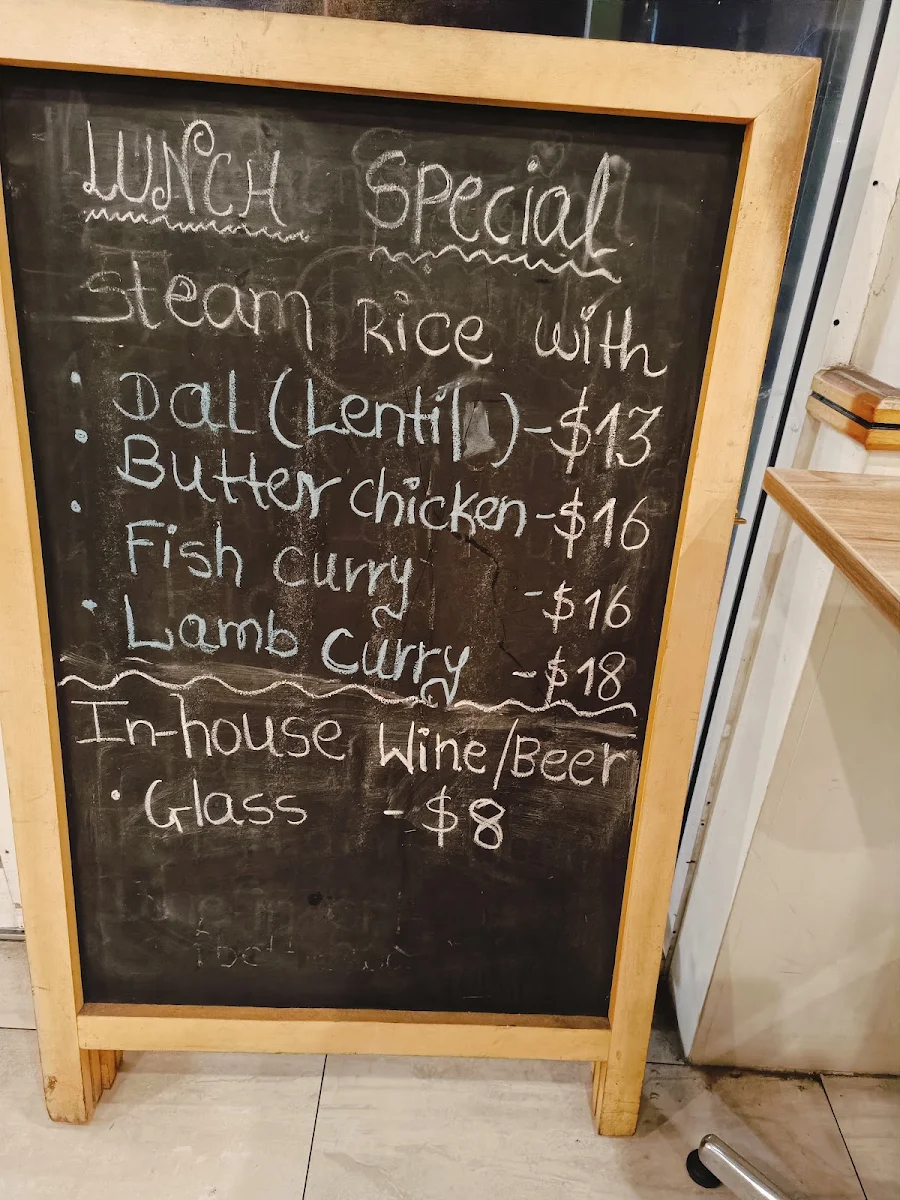 LUNCH Special
Steam Rice with
• Dal (Lentil) - $13
• Butter chicken - $16
• Fish curry - $16
• Lamb curry - $18
In-house Wine/Beer
• Glass - $8